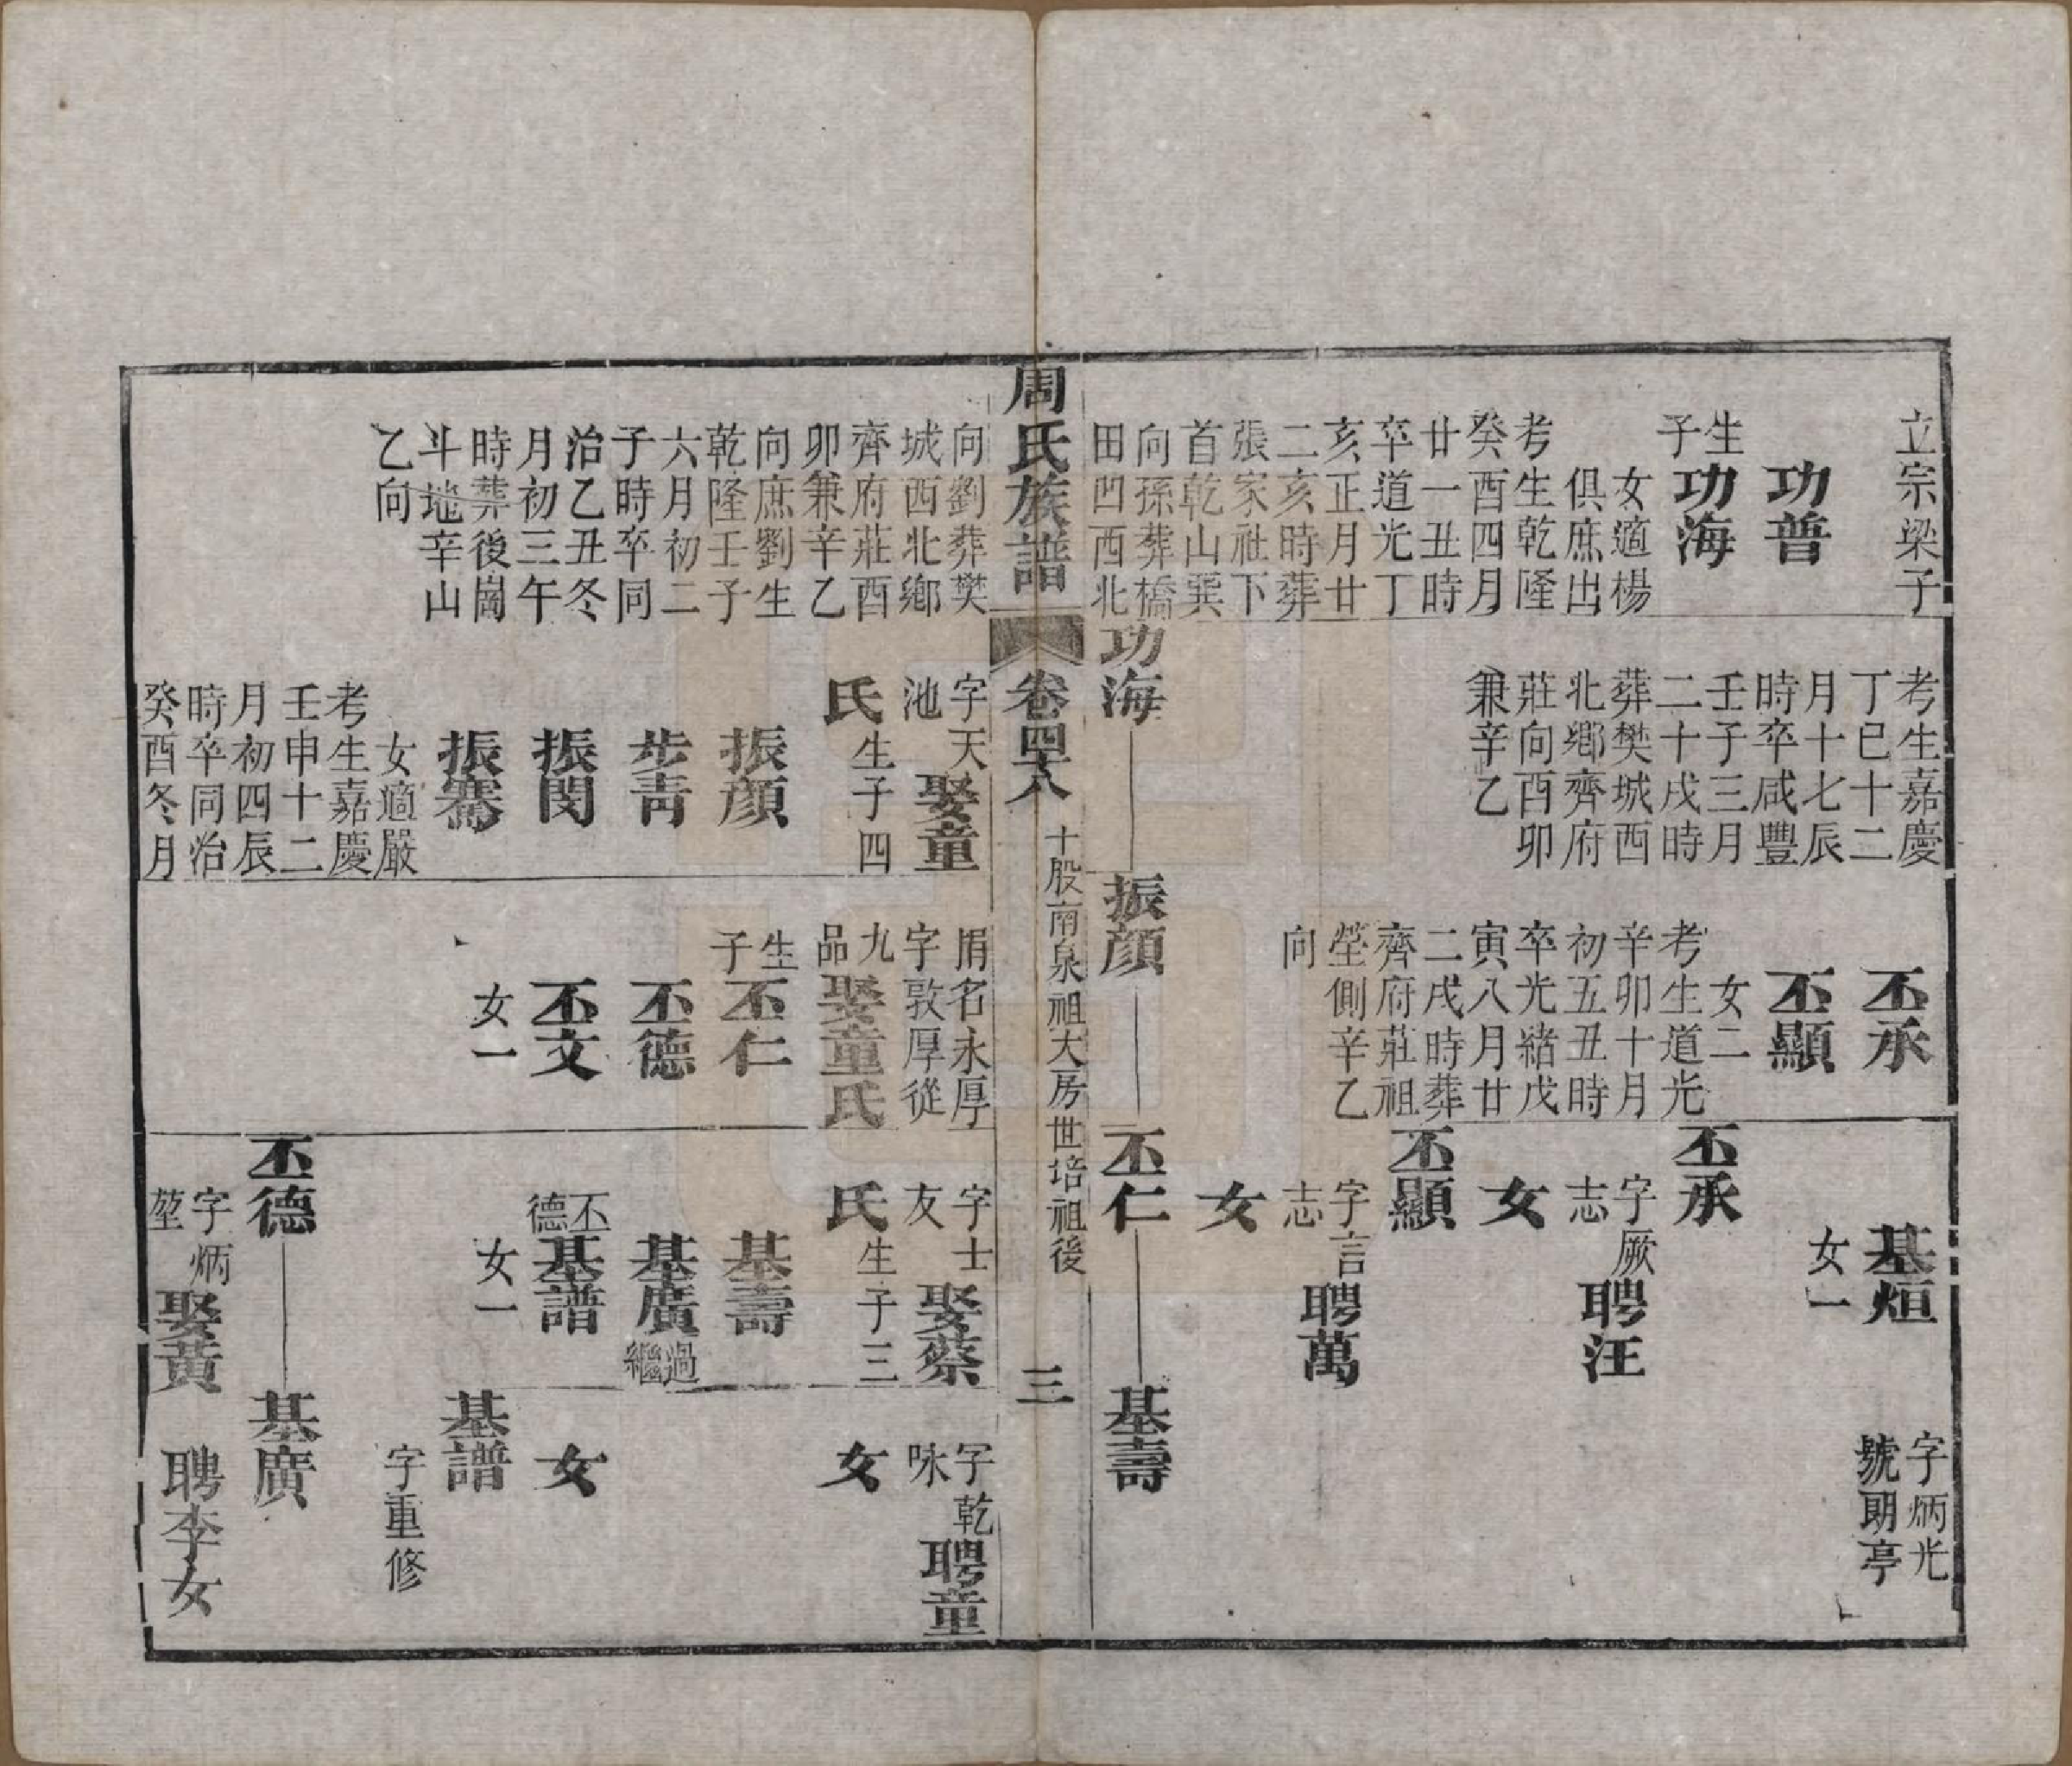 立宗梁子
功普
生子功海
女適楊
俱庶出
考生乾隆
癸酉四月
廿一丑時
卒道光丁
亥正月廿
二亥時葬
張家祉下
首乾山巽
向孫葬橋
田凹西北
考生嘉慶
丁巳十二
月十七辰
時卒咸豐
壬子三月
二十戌時
葬樊城西
北鄉齊府
莊向酉卯
兼辛乙
丕承
丕顯
女二
考生道光
辛卯十月
初五丑時
卒光緒戊
寅八月廿
二戌時葬
齊府莊祖
塋側辛乙
向
基烜
女一
丕承
字厥志
聘汪
女
丕顯
字言志
聘萬
女
字炳光
號朗亭
功海
振顏
丕仁
基壽
周氏族譜
卷四十八
十股南泉祖大房世培祖後
三
向劉葬樊
城西北鄉
齊府莊酉
卯兼辛乙
向庶劉生
乾隆壬子
六月初二
子時卒同
治乙丑冬
月初三午
時葬後崗
斗地辛山
乙向
字天池
娶童
氏生子四
振顏
步青
振閔
振騫
女適嚴
考生嘉慶
壬申十二
月初四辰
時卒同治
癸酉冬月
捐名永厚
字敦厚從
九品娶童氏
生子丕仁
丕德
丕文
女一
字士友
娶蔡
氏生子三
基壽
基廣過繼
丕德
基譜
女一
丕德
字炳堃
娶黃
字乾味
聘童
女
女
基譜
字重修
基廣
聘李女